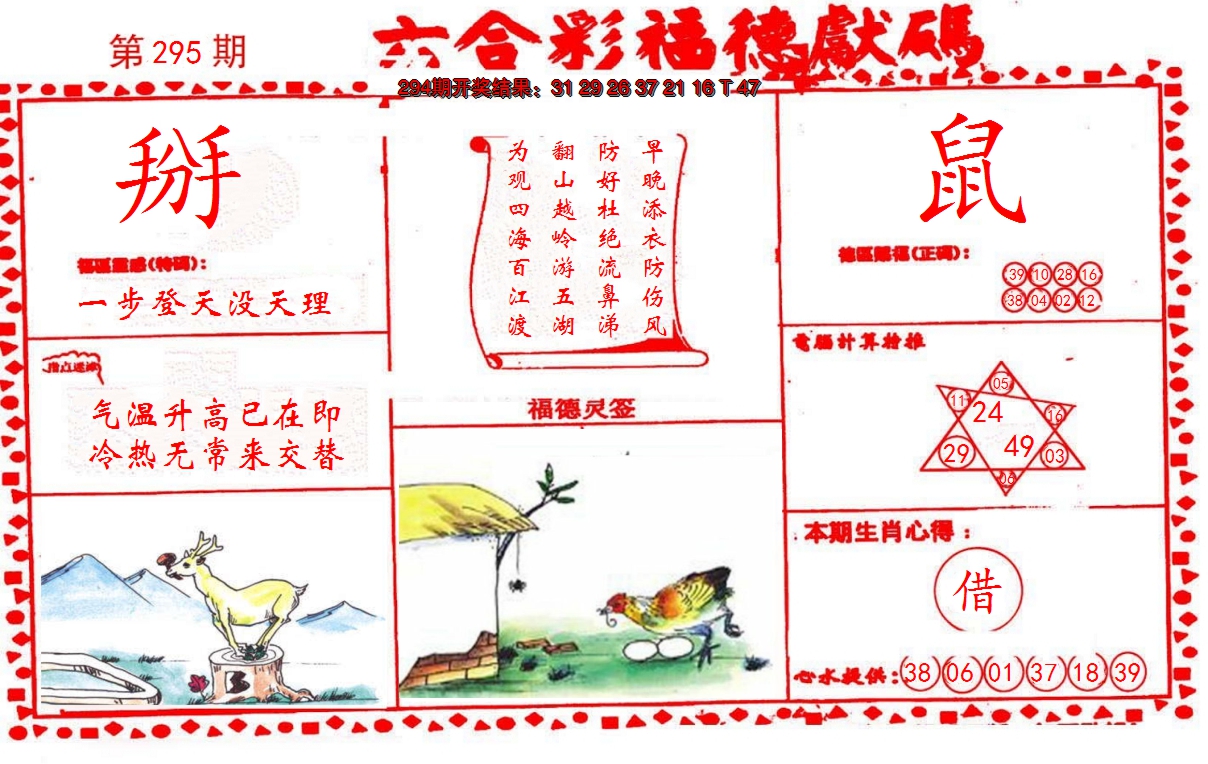 第 295 期
六合彩福德獻碼
294期开奖结果：31 29 26 37 21 16 T 47
掰
福區靈感(特碼)：
一步登天没天理
指点迷津
气温升高已在即
冷热无常来交替
早晚添衣防伤风
防好杜绝流鼻涕
翻山越岭游五湖
为观四海百江渡
福德灵签
鼠
德區賜福(正碼)：
39 10 28 16
38 04 02 12
電腦計算
05
11 24 16
29 49 03
06
本期生肖心得：
借
心水提供：38 06 01 37 18 39